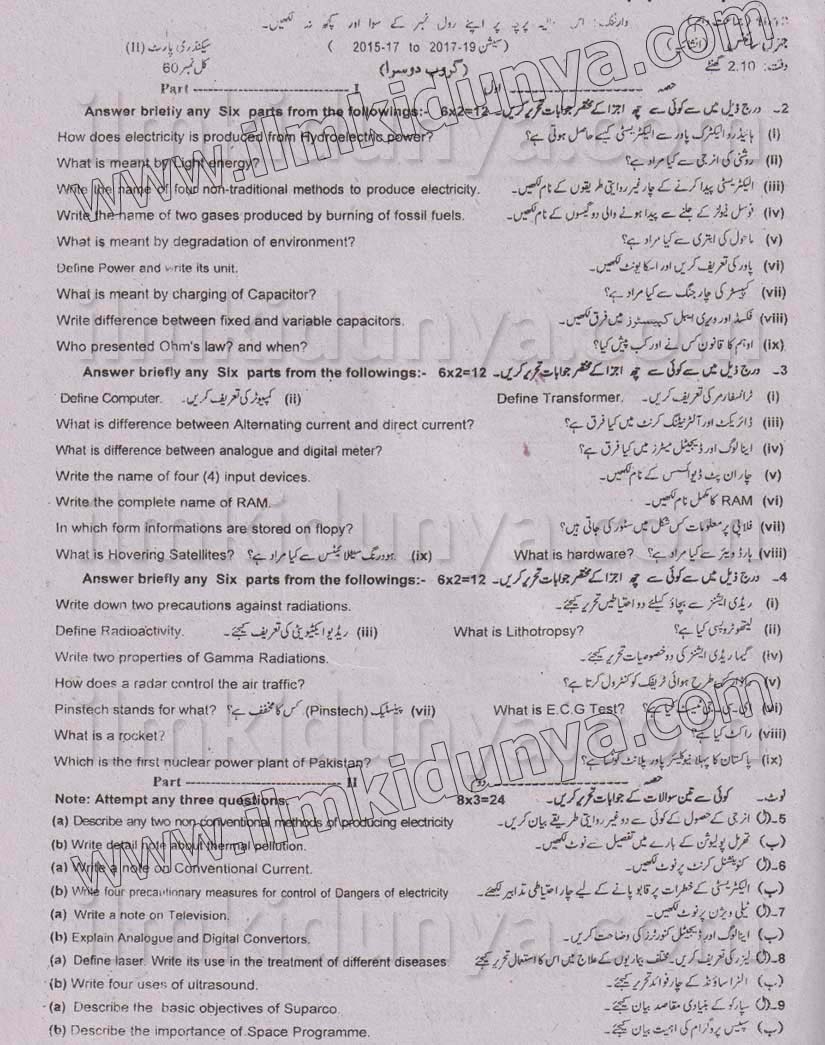 وارننگ: اس پرچہ پر اپنے رول نمبر کے سوا اور کچھ نہ لکھیں۔
جنرل سائنس (انشائیہ) (سیشن 2015-17 to 2017-19) سیکنڈری پارٹ (II)
وقت: 2.10 گھنٹے (گروپ دوسرا) کل نمبر 60
Part ---------- I حصہ ---------- اول
Answer briefly any Six parts from the followings:- 6x2=12 درج ذیل میں سے کوئی سے چھ اجزا کے مختصر جوابات تحریر کریں۔ 2۔
How does electricity is produced from Hydroelectric power? ہائیڈرو الیکٹرک پاور سے الیکٹریسٹی کیسے حاصل ہوتی ہے؟ (i)
What is meant by Light energy? روشنی کی انرجی سے کیا مراد ہے؟ (ii)
Write the name of four non-traditional methods to produce electricity. الیکٹریسٹی پیدا کرنے کے چار غیر روایتی طریقوں کے نام لکھیں۔ (iii)
Write the name of two gases produced by burning of fossil fuels. فوسل فیولز کے جلنے سے پیدا ہونے والی دو گیسوں کے نام لکھیں۔ (iv)
What is meant by degradation of environment? ماحول کی ابتری سے کیا مراد ہے؟ (v)
Define Power and write its unit. پاور کی تعریف کریں اور اسکا یونٹ لکھیں۔ (vi)
What is meant by charging of Capacitor? کپیسٹر کی چارجنگ سے کیا مراد ہے؟ (vii)
Write difference between fixed and variable capacitors. فکسڈ اور ویری ایبل کپیسٹرز میں فرق لکھیں۔ (viii)
Who presented Ohm's law? and when? اوہم کا قانون کس نے اور کب پیش کیا؟ (ix)
Answer briefly any Six parts from the followings:- 6x2=12 درج ذیل میں سے کوئی سے چھ اجزا کے مختصر جوابات تحریر کریں۔ 3۔
Define Computer. کمپیوٹر کی تعریف کریں۔ (ii) Define Transformer. ٹرانسفارمر کی تعریف کریں۔ (i)
What is difference between Alternating current and direct current? ڈائریکٹ اور آلٹرنیٹنگ کرنٹ میں کیا فرق ہے؟ (iii)
What is difference between analogue and digital meter? اینالوگ اور ڈیجیٹل میٹرز میں کیا فرق ہے؟ (iv)
Write the name of four (4) input devices. چار ان پٹ ڈیوائسس کے نام لکھیں۔ (v)
Write the complete name of RAM. RAM کا مکمل نام لکھیں۔ (vi)
In which form informations are stored on flopy? فلاپی پر معلومات کس شکل میں سٹور کی جاتی ہیں؟ (vii)
What is Hovering Satellites? ہوورنگ سٹلائیٹس سے کیا مراد ہے؟ (ix) What is hardware? ہارڈ ویئر سے کیا مراد ہے؟ (viii)
Answer briefly any Six parts from the followings:- 6x2=12 درج ذیل میں سے کوئی سے چھ اجزا کے مختصر جوابات تحریر کریں۔ 4۔
Write down two precautions against radiations. ریڈی ایشنز سے بچاؤ کیلئے دو احتیاطیں تحریر کیجئے۔ (i)
Define Radioactivity. ریڈیو ایکٹیویٹی کی تعریف کیجئے۔ (iii) What is Lithotropsy? لیتھوٹروپسی کیا ہے؟ (ii)
Write two properties of Gamma Radiations. گیما ریڈی ایشنز کی دو خصوصیات تحریر کیجئے۔ (iv)
How does a radar control the air traffic? کس طرح ہوائی ٹریفک کو کنٹرول کرتا ہے؟ (v)
Pinstech stands for what? پینسٹیک (Pinstech) کس کا مخفف ہے؟ (vii) What is E.C.G Test? ای۔سی۔جی ٹیسٹ کیا ہے؟ (vi)
What is a rocket? راکٹ کیا ہے؟ (viii)
Which is the first nuclear power plant of Pakistan? پاکستان کا پہلا نیوکلیئر پاور پلانٹ کونسا ہے؟ (ix)
Part ---------- II حصہ ---------- دوم
Note: Attempt any three questions. 8x3=24 کوئی سے تین سوالات کے جوابات تحریر کریں۔ نوٹ۔
(a) Describe any two non-conventional methods of producing electricity انرجی کے حصول کے کوئی سے دو غیر روایتی طریقے بیان کریں۔ 5۔(ا)
(b) Write detail note about thermal pollution. تھرمل پولیوشن کے بارے میں تفصیل سے نوٹ لکھیں۔ (ب)
(a) Write a note on Conventional Current. کنونشنل کرنٹ پر نوٹ لکھیں۔ 6۔(ا)
(b) Write four precautionary measures for control of Dangers of electricity الیکٹریسٹی کے خطرات پر قابو پانے کے لیے چار احتیاطی تدابیر لکھیئے۔ (ب)
(a) Write a note on Television. ٹیلی ویژن پر نوٹ لکھیں۔ 7۔(ا)
(b) Explain Analogue and Digital Convertors. اینالوگ اور ڈیجیٹل کنورٹرز کی وضاحت کریں۔ (ب)
(a) Define laser. Write its use in the treatment of different diseases لیزر کی تعریف کریں۔ مختلف بیماریوں کے علاج میں اس کا استعمال تحریر کیجئے۔ 8۔(ا)
(b) Write four uses of ultrasound. الٹرا ساؤنڈ کے چار فوائد تحریر کیجئے۔ (ب)
(a) Describe the basic objectives of Suparco. سپارکو کے بنیادی مقاصد بیان کیجئے۔ 9۔(ا)
(b) Describe the importance of Space Programme. سپیس پروگرام کی اہمیت بیان کیجئے۔ (ب)
www.ilmkidunya.com
www.ilmkidunya.com
ilmkidunya.com
ilmkidunya.com
ilmkidunya.com